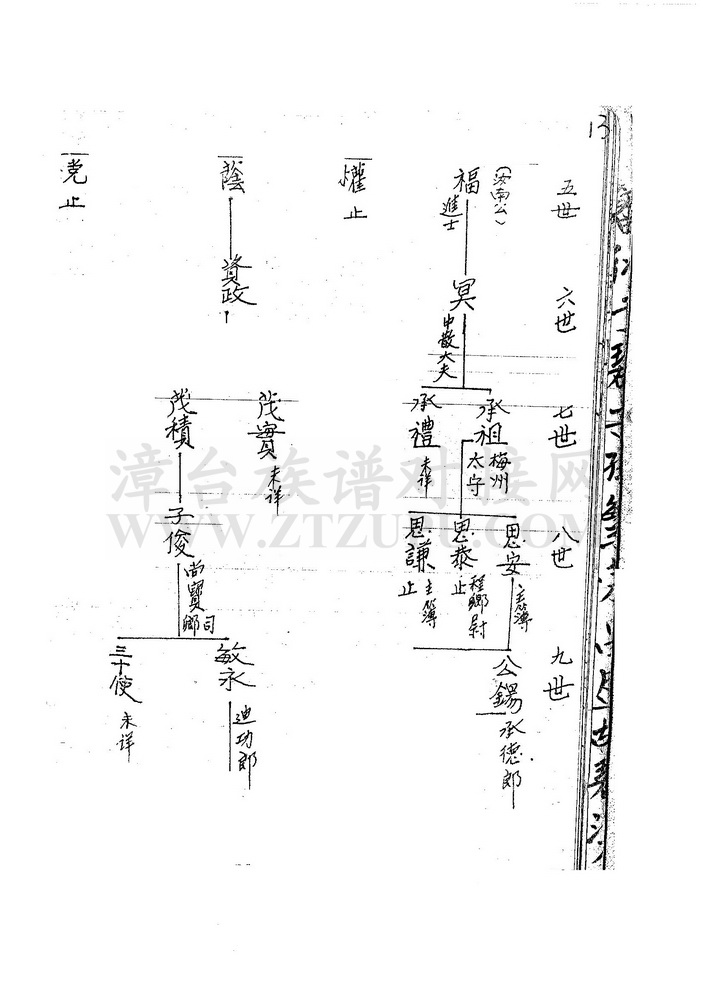 13
五世
六世
七世
八世
九世
(汝南公)
福
進士
冥
中散大夫
承祖
梅州
太守
承禮
未详
思安
主簿
思泰
程鄉尉
止
思謙
主簿
止
公鍚
承德郎
權止
蔭
資政
茂實
未详
茂積
子俊
尚寶司
卿
敏永
迪功郎
三十使
未详
党止
漳台族谱对接网
WWW.ZTZUPU.COM